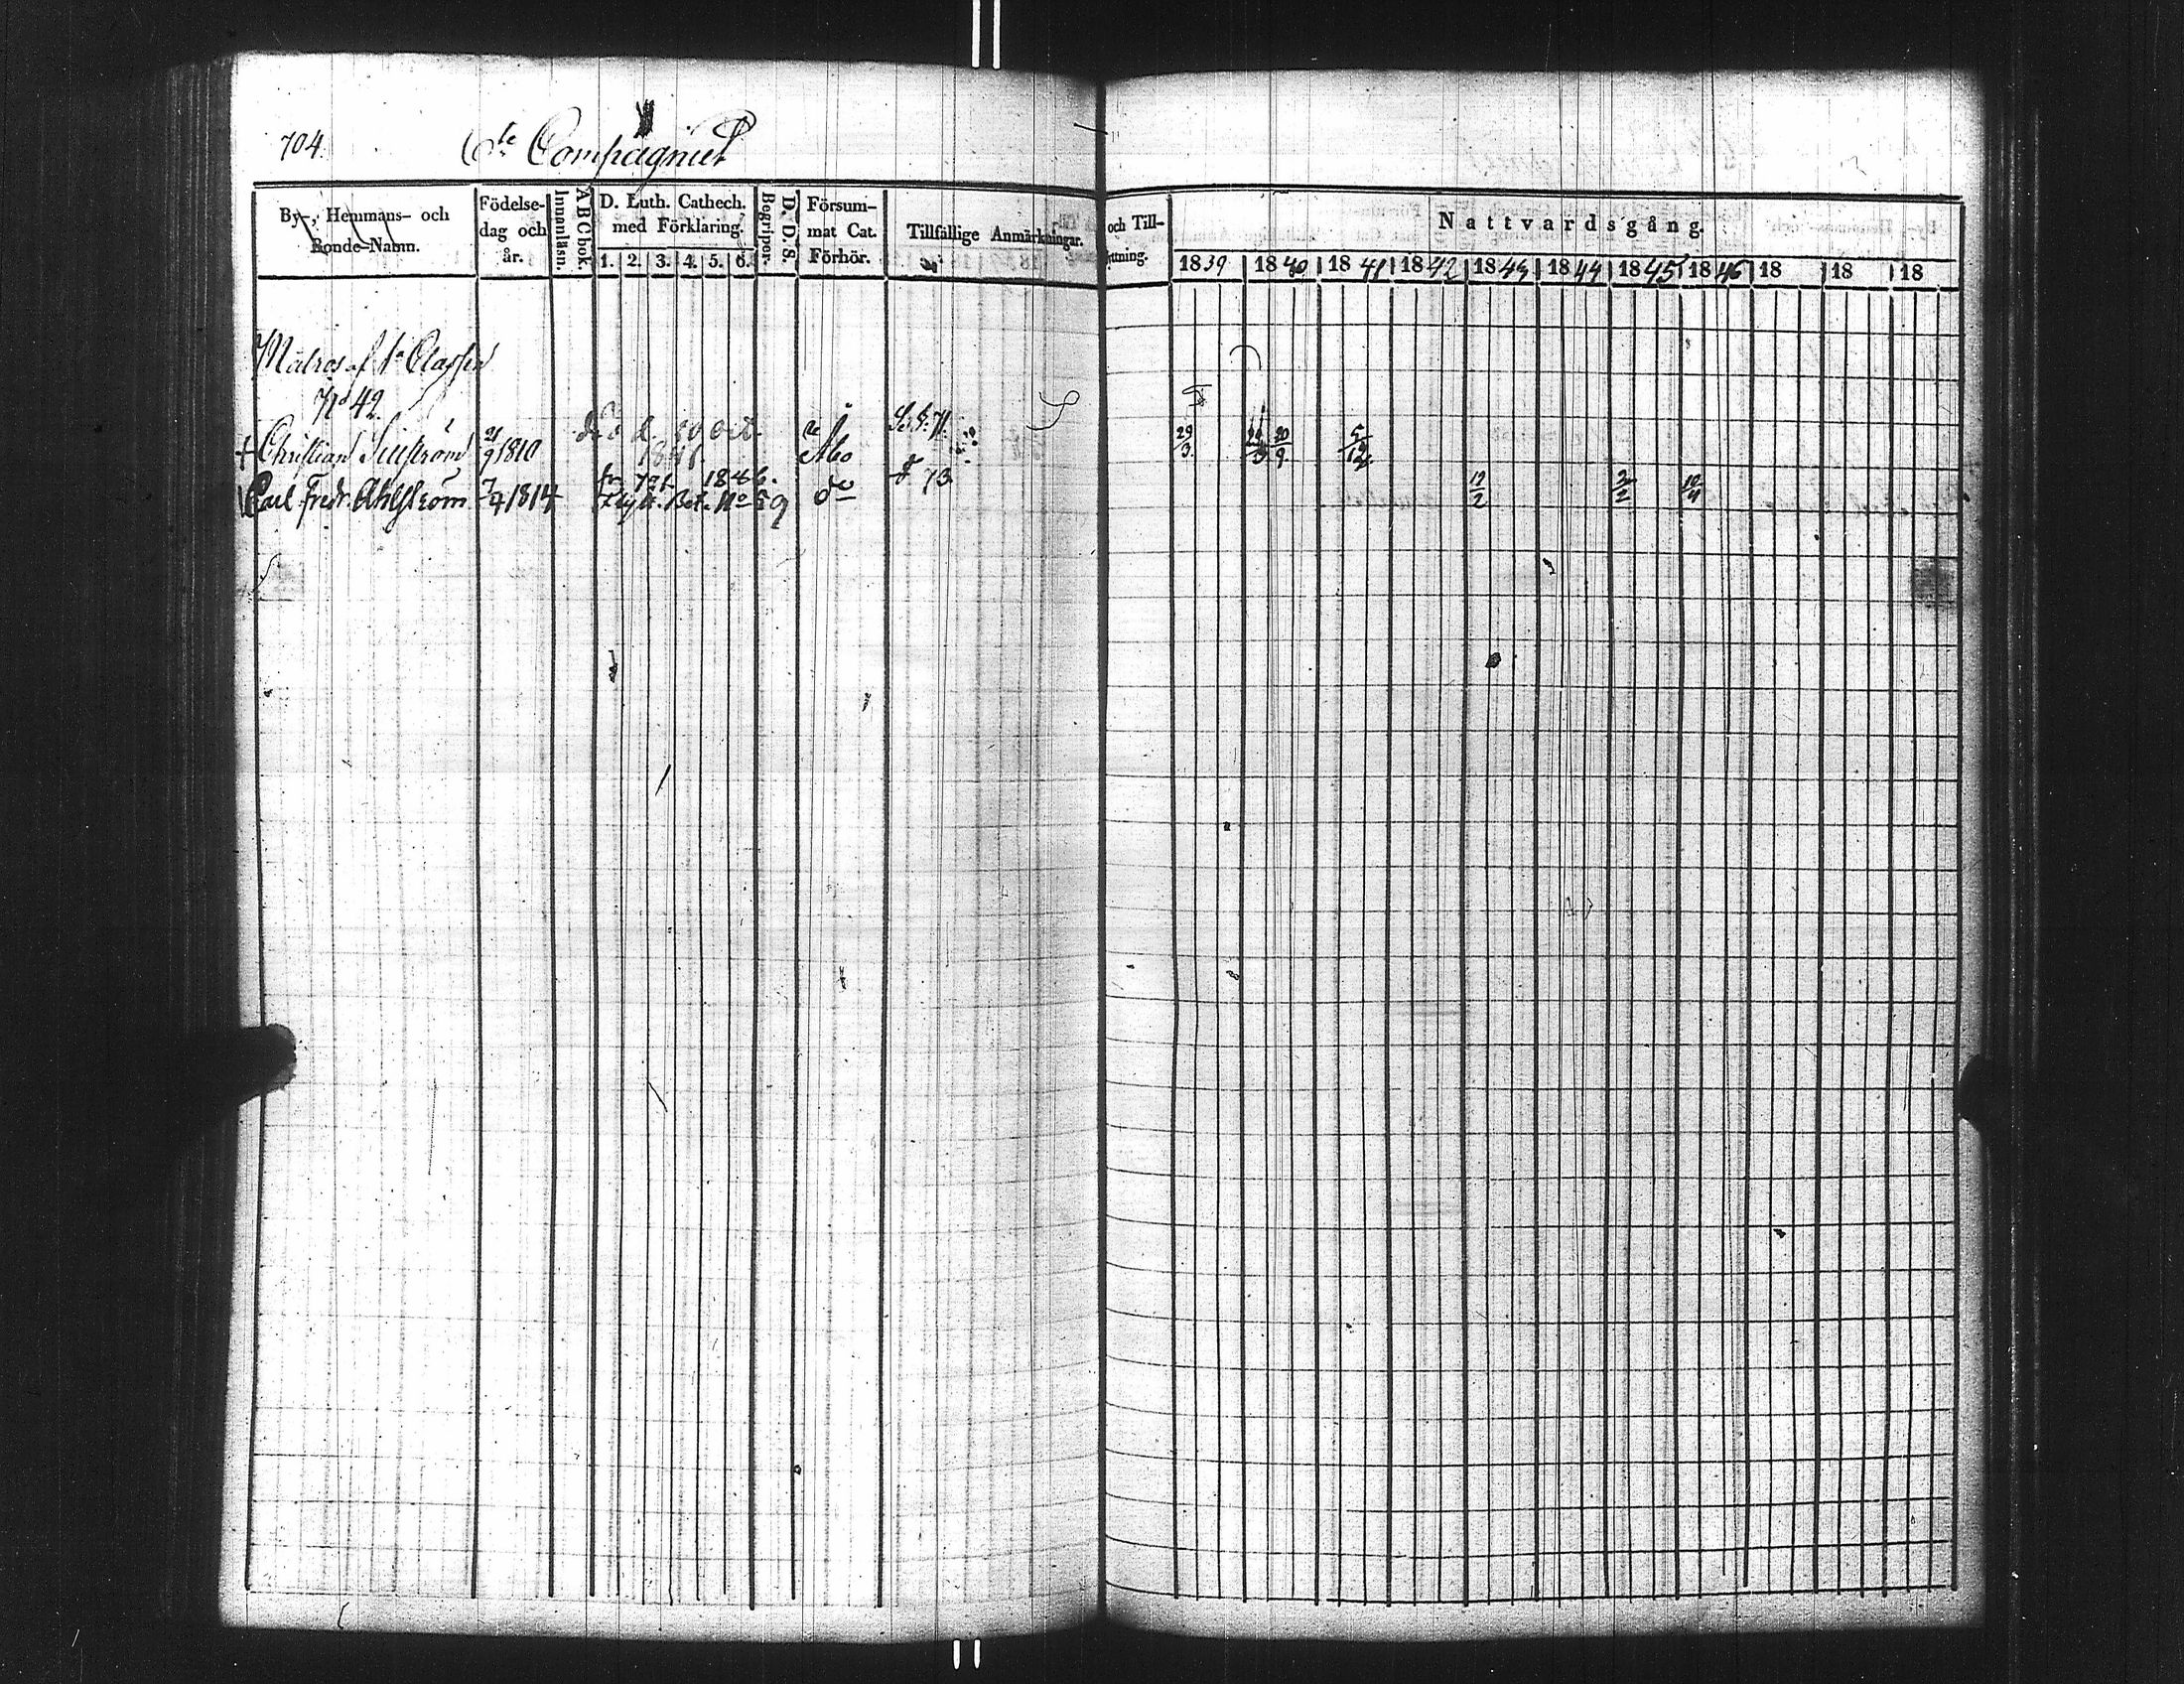 704.
6te Compagniet
By-, Hemmans- och Bonde-Namn.
Födelse-dag och år.
Innanläsn.
ABC bok.
D. Luth. Cathech. med Förklaring.
1. 2. 3. 4. 5. 6.
Begriper.
D. D. S.
Försum-mat Cat. Förhör.
Tillfällige Anmärkningar.
och Till-
Nattvardsgång.
1839 1840 1841 1842 1843 1844 1845 1846 18 18 18
Matros af 1a Classen
No 42
Christian 1810 Åbo
29/3 20/9
Carl Fredr. Ahlström 7/9 1814 1846. No 59 do 13
12/2 2/2